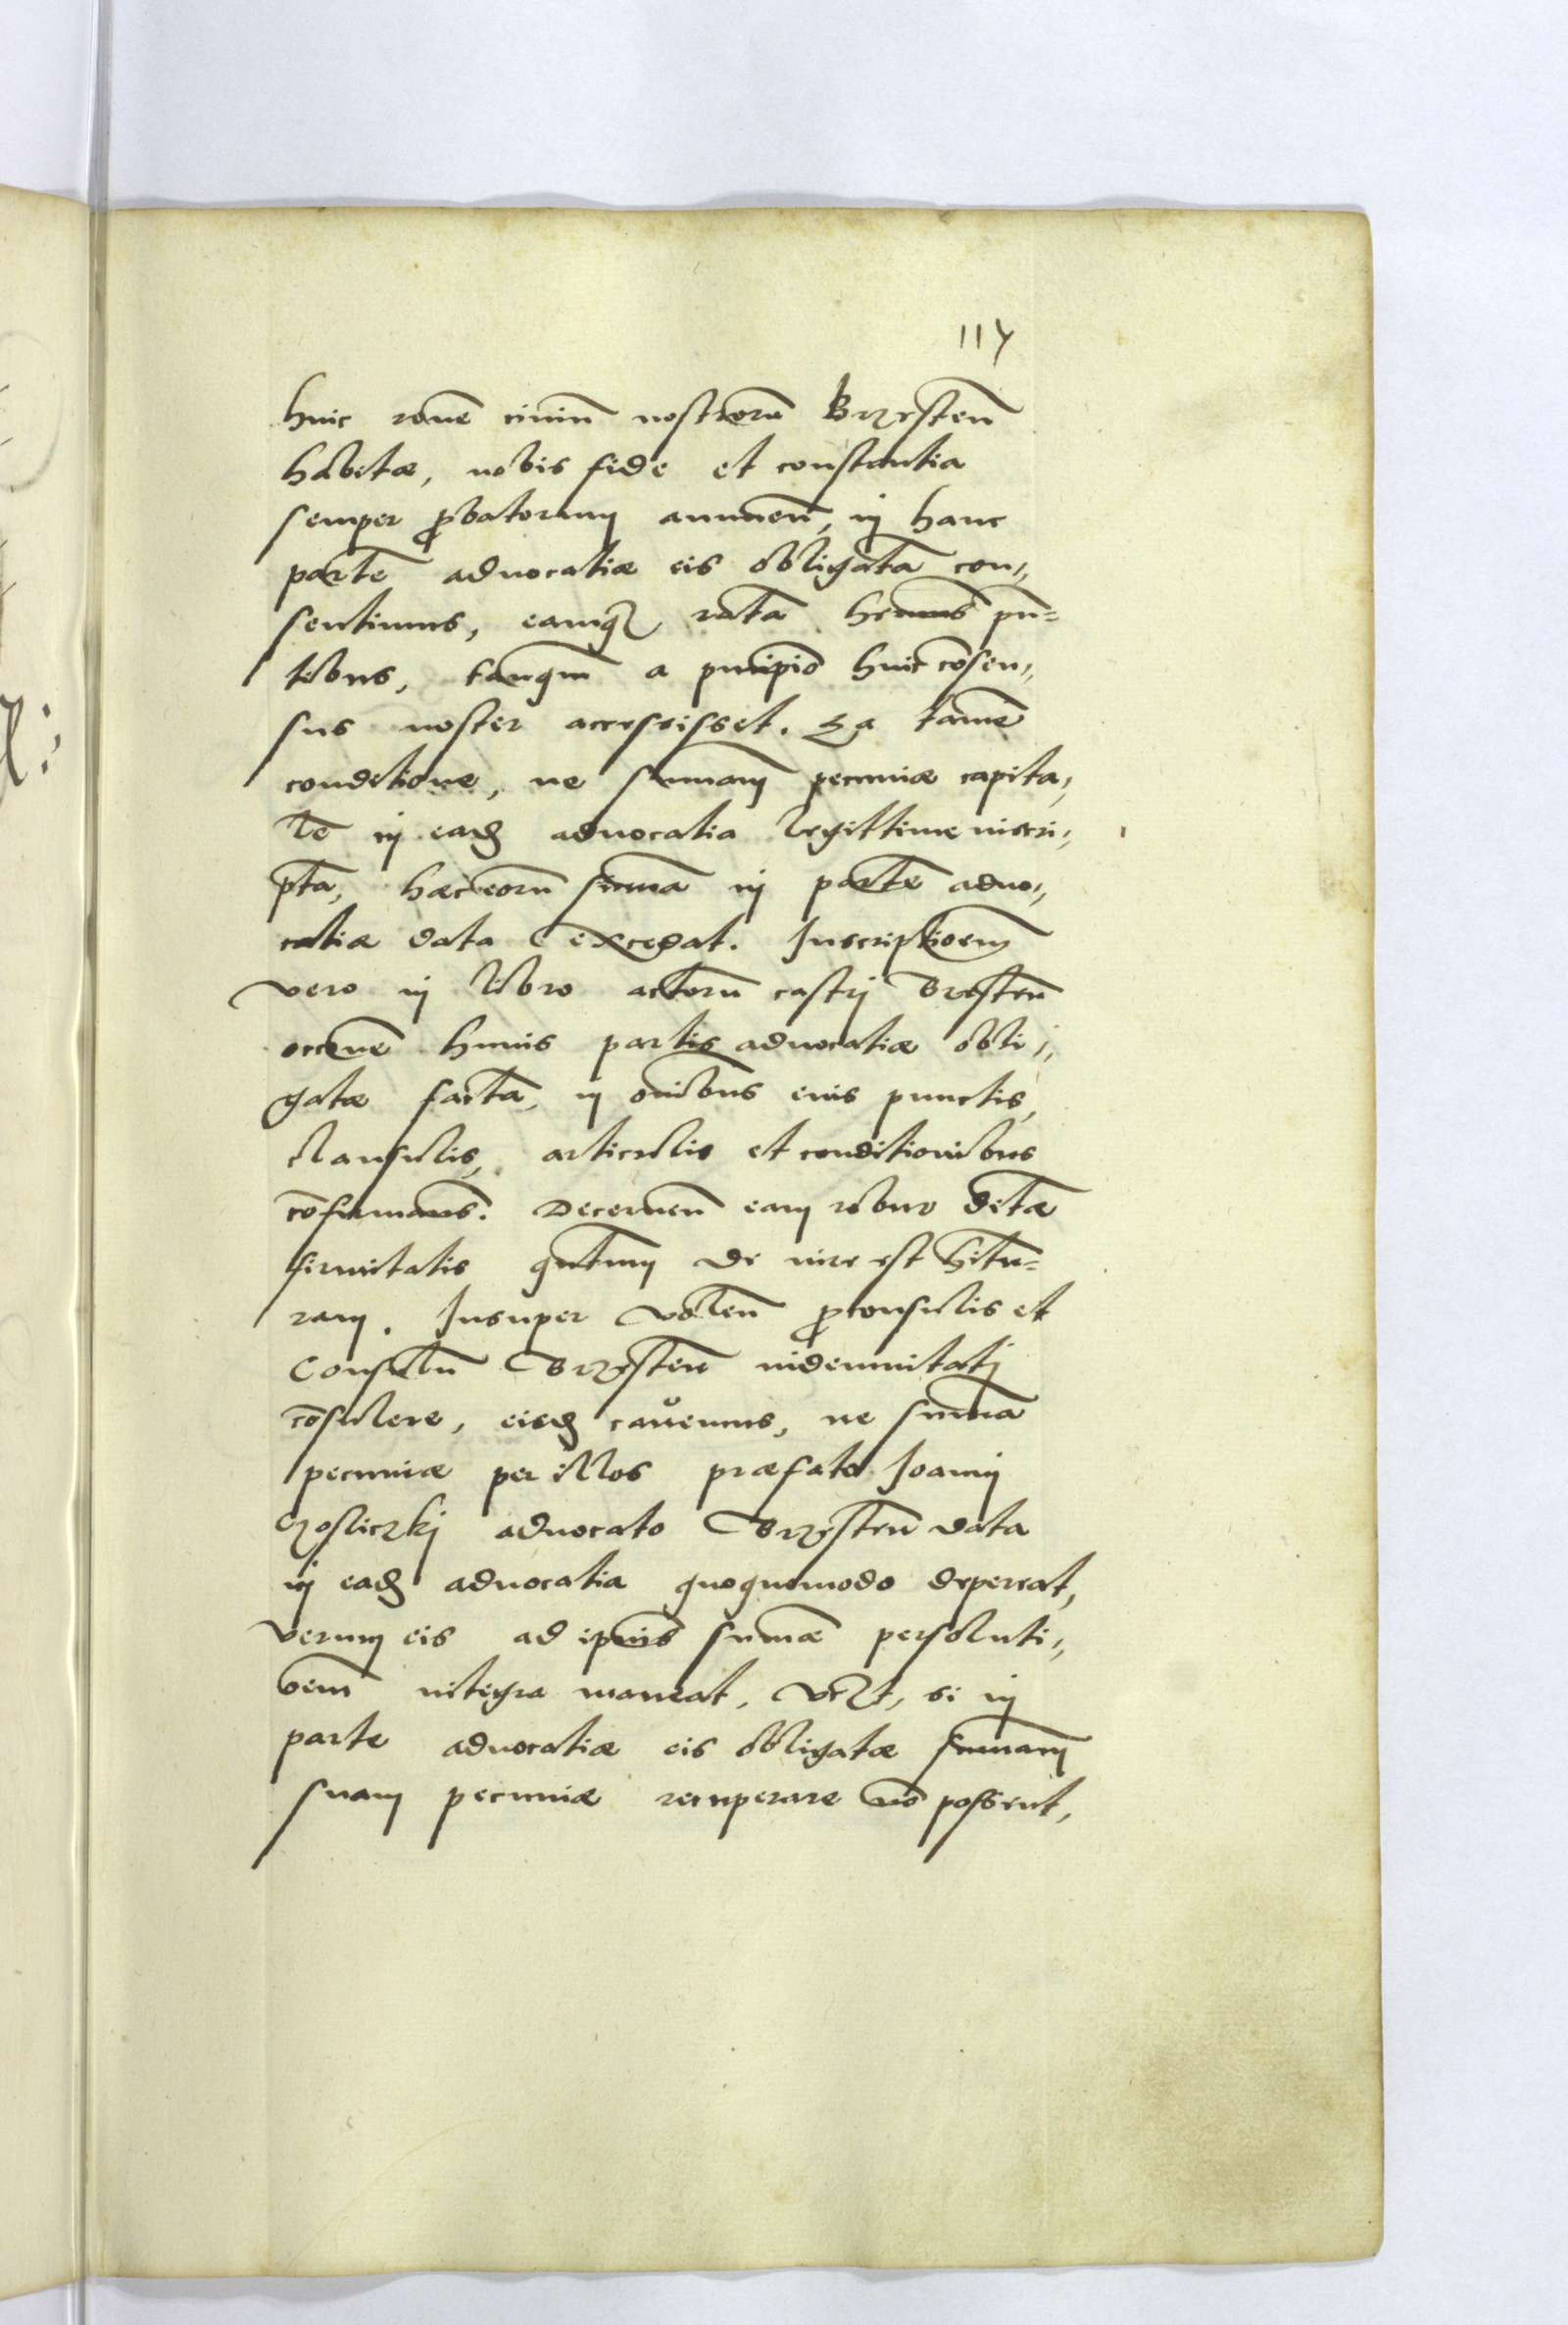 117
huic rone̅ civiu̅ nostroru̅ Brzesten̅
habitæ, nobis fide et constantia
semper ꝓbatorum annuen̅, in hanc
parte̅ advocatiæ eis obligata̅ con⸗
sentimus, eamqꝫ rata̅ hemus̅ pn̅⸗
tibus, tanqm̅ a pn̅cipio huic co̅sen⸗
sus noster accessisset. Ea tame̅
conditione, ne summam pecuniæ capita⸗
le̅ in eadꝫ advocatia legittime inscri⸗
pta̅, hæc eoru̅ summa̅ in parte̅ advo⸗
catiæ data excedat. Inscriptioem̅
vero in libro actoru̅ castri Bresten̅
occne̅ huius partis advocatiæ obli⸗
gatæ facta̅, in oi̅bus eius punctis,
clausulis, articulis et conditionibus
co̅firmams̅. Decernen̅ eam robur debitæ
firmitatis qntum̅ de iure est hitu̅⸗
ram. Insuper volen̅ ꝓconsulis et
Consulu̅ Brzesten̅ indemnitati
co̅sulere, eisdꝫ cavemus, ne summa̅
pecuniæ per illos præfato Joanni
Czosliczki advocato Brzesten̅ data
in eadꝫ advocatia quoquomodo depereat,
verum eis ad ipius̅ summæ̅ persoluti⸗
oem̅ integra maneat, vrꝫt, si in
parte advocatiæ eis obligatæ summam̅
suam pecuniæ recuperare no̅ possent,